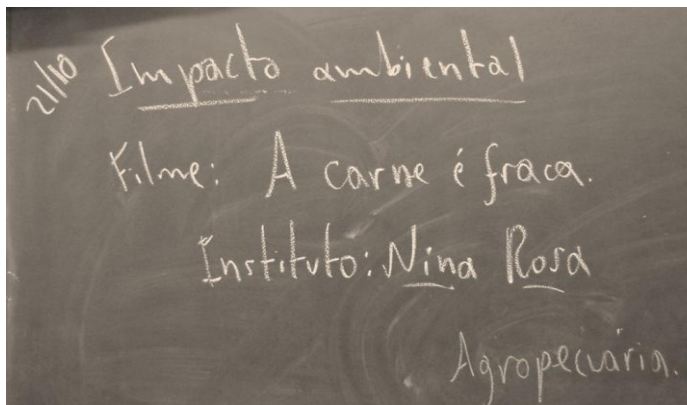 21/10 Impacto ambiental
Filme: A carne é fraca.
Instituto: Nina Rosa
Agropecuária.